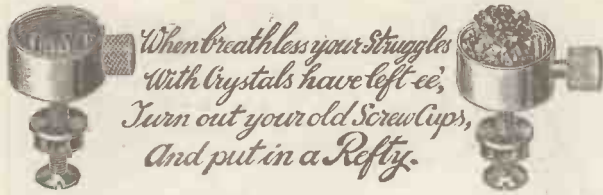 When breathless your Struggles
With Crystals have left-ee',
Turn out your old Screw Cups,
And put in a Refty.